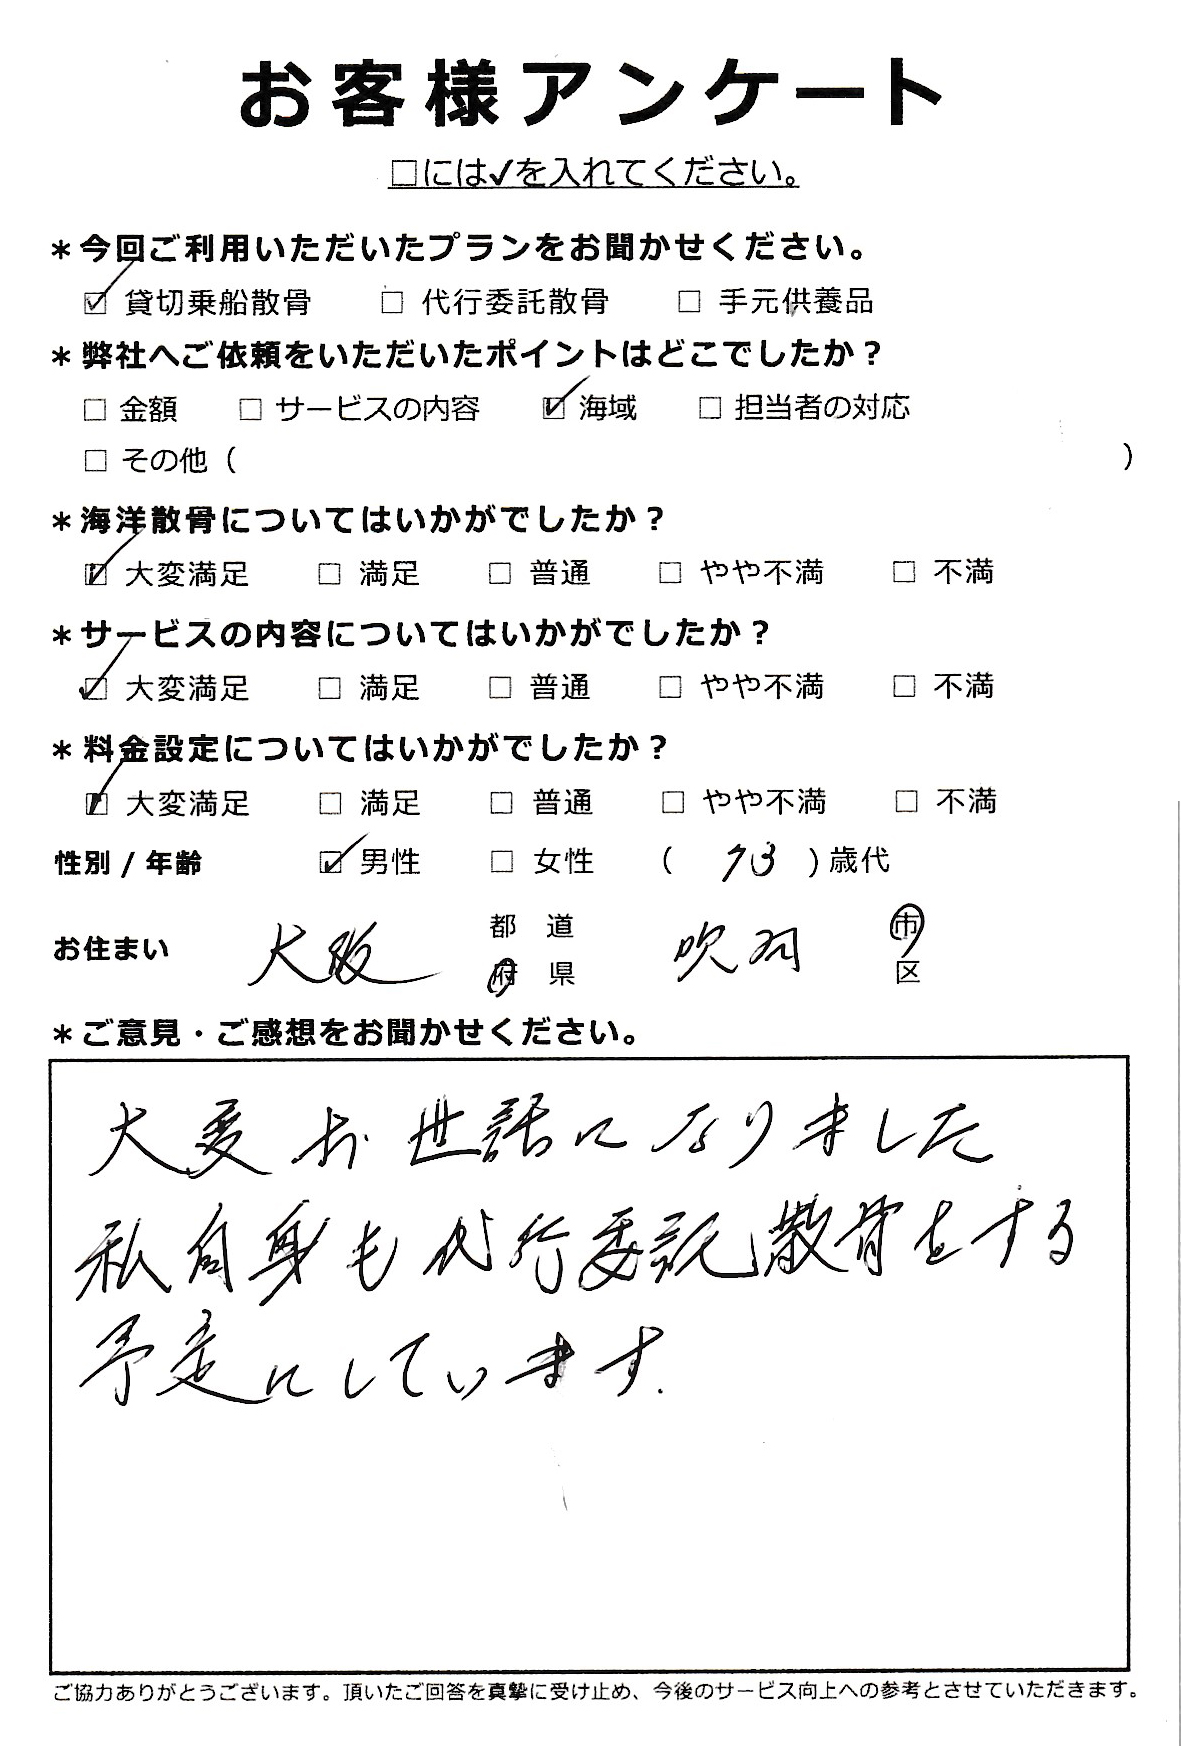 お客様アンケート
□には✓を入れてください。
＊今回ご利用いただいたプランをお聞かせください。
☑ 貸切乗船散骨 □ 代行委託散骨 □ 手元供養品
＊弊社へご依頼をいただいたポイントはどこでしたか？
□ 金額 □ サービスの内容 ☑ 海域 □ 担当者の対応
□ その他（ ）
＊海洋散骨についてはいかがでしたか？
☑ 大変満足 □ 満足 □ 普通 □ やや不満 □ 不満
＊サービスの内容についてはいかがでしたか？
☑ 大変満足 □ 満足 □ 普通 □ やや不満 □ 不満
＊料金設定についてはいかがでしたか？
☑ 大変満足 □ 満足 □ 普通 □ やや不満 □ 不満
性別 / 年齢 ☑ 男性 □ 女性 （ 73 ）歳代
お住まい 大阪 都 道 府 県 吹田 市 区
＊ご意見・ご感想をお聞かせください。
大変お世話になりました
私自身も代行委託散骨をする
予定にしています.
ご協力ありがとうございます。頂いたご回答を真摯に受け止め、今後のサービス向上への参考とさせていただきます。